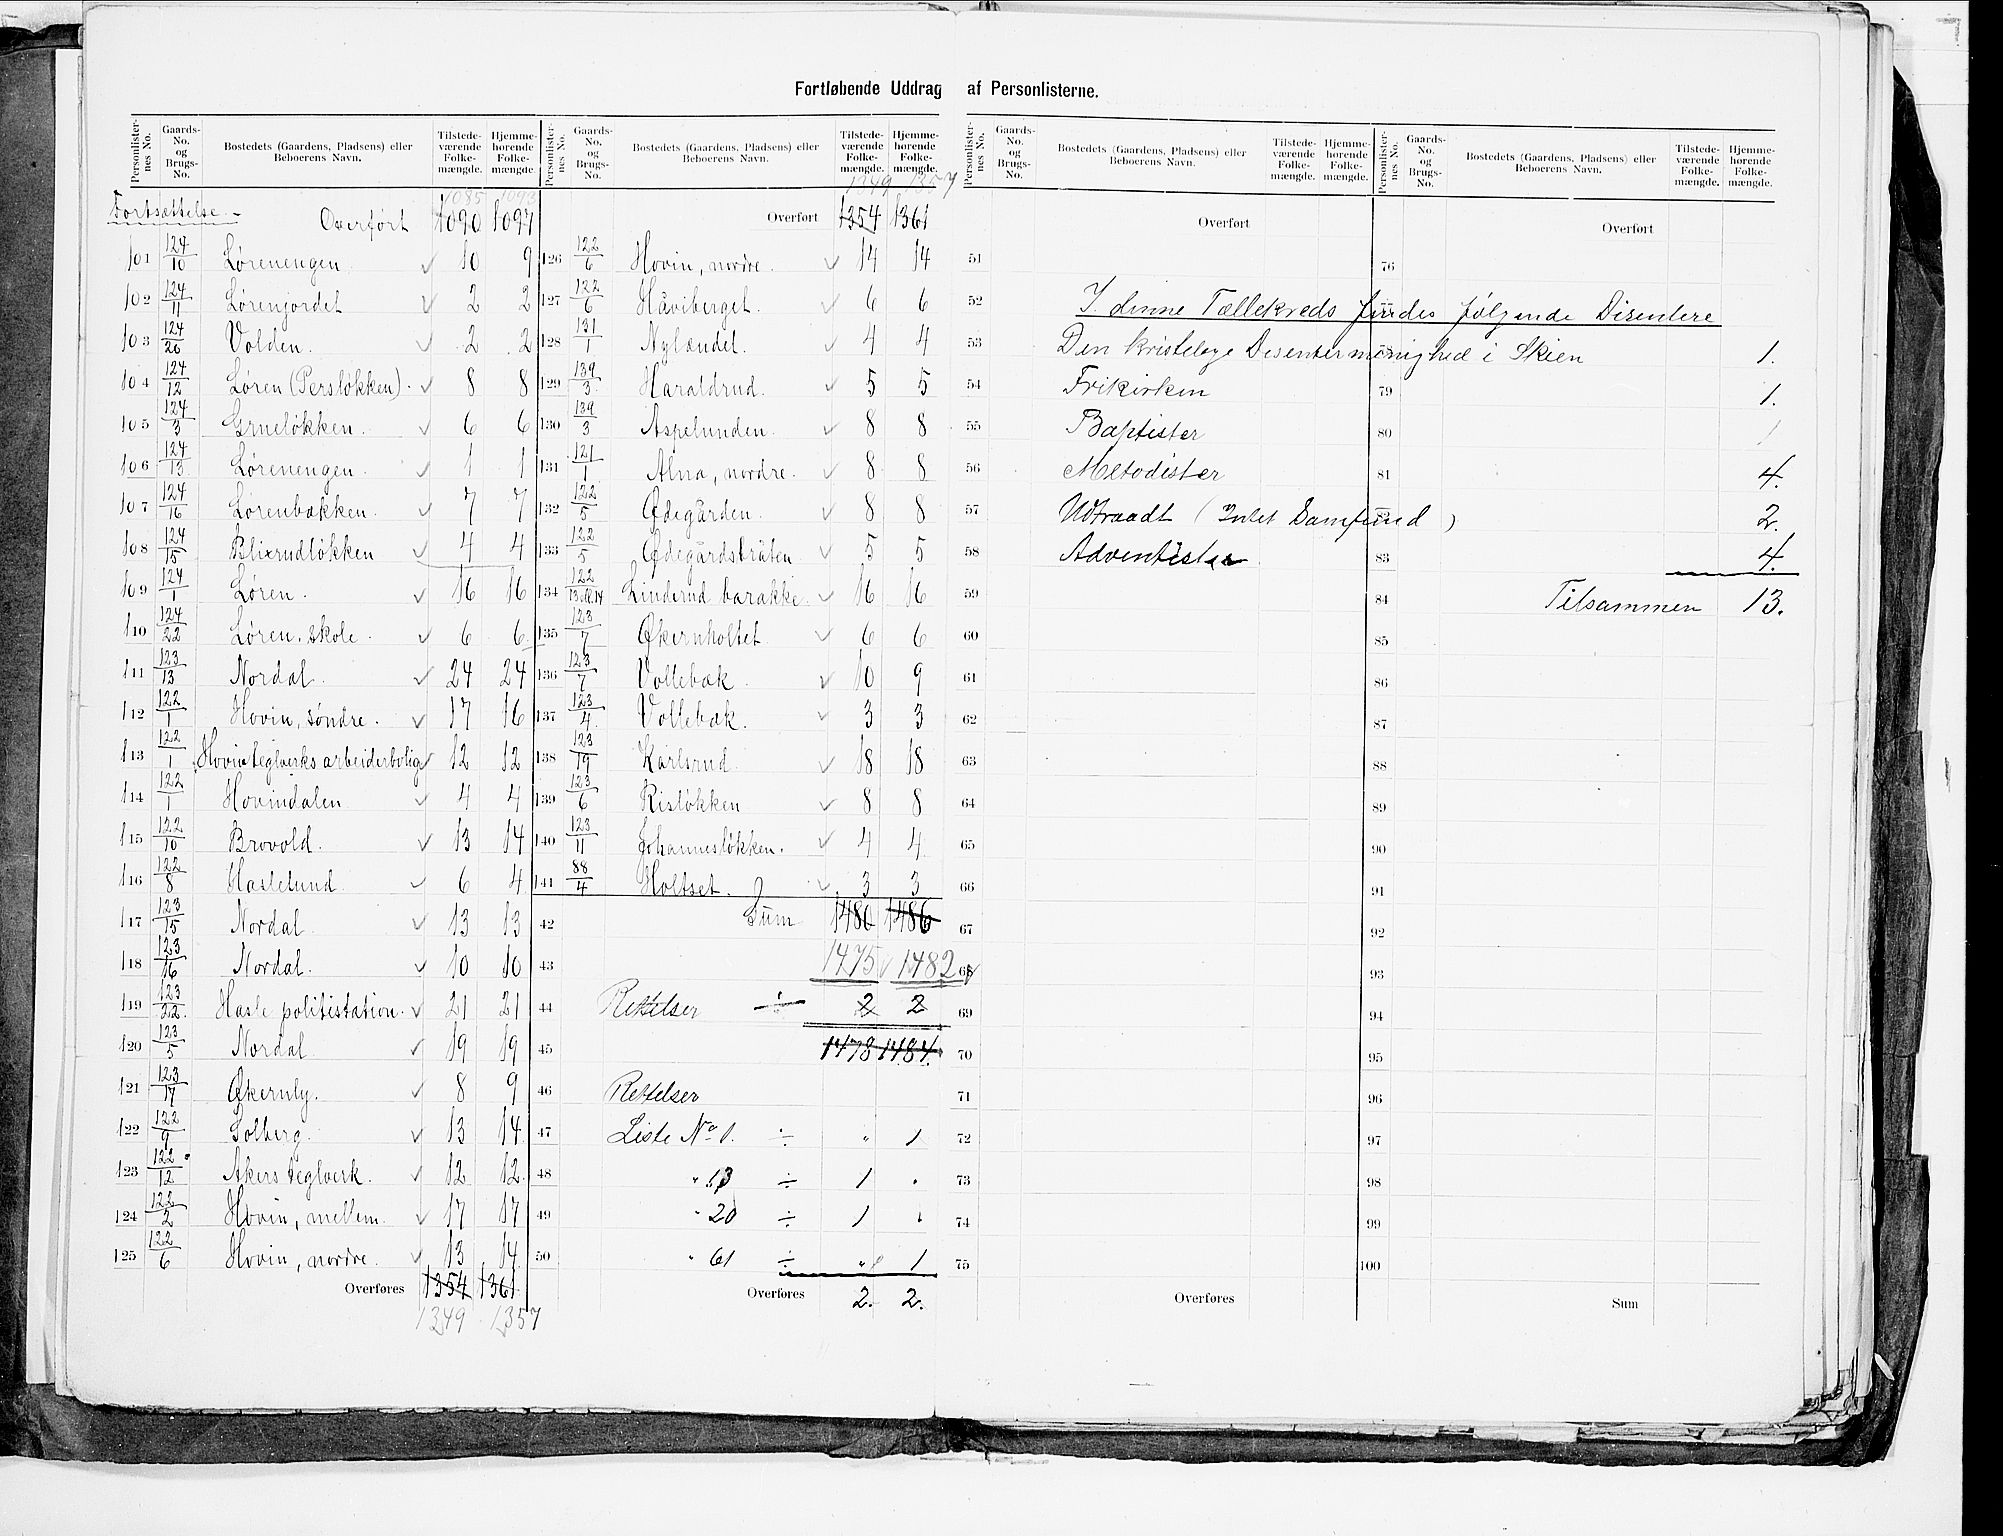 Fortløbende Uddrag af Personlisterne.
Personlisternes No. Gaards-No. og Brugs-No. Bostedets (Gaardens, Pladsens) eller Beboerens Navn. Tilstedeværende Folkemængde. Hjemmehørende Folkemængde.
Personlisternes No. Gaards-No. og Brugs-No. Bostedets (Gaardens, Pladsens) eller Beboerens Navn. Tilstedeværende Folkemængde. Hjemmehørende Folkemængde.
Personlisternes No. Gaards-No. og Brugs-No. Bostedets (Gaardens, Pladsens) eller Beboerens Navn. Tilstedeværende Folkemængde. Hjemmehørende Folkemængde.
Personlisternes No. Gaards-No. og Brugs-No. Bostedets (Gaardens, Pladsens) eller Beboerens Navn. Tilstedeværende Folkemængde. Hjemmehørende Folkemængde.
1085 1093
Fortsættelse. - Overført 1090 1097
101 124/10 Lørenengen. 10 9
102 124/11 Lørenjordet 2 2
103 124/20 Volden. 2 2
104 124/12 Løren (Persløkken). 8 8
105 124/3 Grueløkken. 6 6
106 124/13 Lørenengen. 1 1
107 124/16 Lørenbakken. 7 7
108 124/15 Blixrudløkken 4 4
109 124/1 Løren. 16 16
110 124/22 Løren. skole. 6 6
111 123/13 Nordal. 24 24
112 122/1 Hovin, søndre. 17 16
113 122/1 Hovinteglverks arbeiderbolig 12 12
114 122/1 Hovindalen 4 4
115 122/10 Brovold. 13 14
116 122/8 Haslelund. 6 4
117 123/15 Nordal. 13 13
118 123/16 Nordal. 10 10
119 123/22 Hasle politistation. 21 21
120 123/5 Nordal. 19 19
121 123/17 Økernly. 8 9
122 122/9 Solberg. 13 14
123 122/12 Akers teglverk. 12 12
124 122/2 Hovin, mellem. 17 17
125 122/6 Hovin, nordre. 13 14
Overføres 1354 1361
1349 1357
1349 1357
Overført 1354 1361
126 122/6 Hovin, nordre. 14 14
127 122/6 Håviberget. 6 6
128 131/1 Nylændet. 4 4
129 139/3 Haraldrud. 5 5
130 139/3 Aspelunden. 8 8
131 121/1 Alna, nordre. 8 8
132 122/5 Ødegården. 8 8
133 122/5 Ødegårdsbråten. 5 5
134 122/13 & 14 Linderud barakke. 16 16
135 123/7 Økernholtet. 6 6
136 123/7 Vollebæk. 10 9
137 123/4 Vollebæk. 3 3
138 123/19 Karlsrud. 18 18
139 123/6 Risløkken 8 8
140 123/11 Johannesløkken. 4 4
141 88/4 Holtset. 3 3
42 Sum 1480 1486
43 1475 1482
44 Rettelser ÷ 2 2
45 1478 1484.
46 Rettelser
47 Liste No 1. ÷ " 1
48 " 13 ÷ 1 "
49 " 20 ÷ 1 "
50 " 61 ÷ " 1
Overføres 2. 2.
Overført
51
52 I denne Tællekreds findes følgende Disentere
53 Den kristelige Desentermenighed i Skien 1.
54 Frikirken 1.
55 Baptister 1
56 Metodister 4.
57 Udtraadt (Intet Samfund) 2.
58 Adventister 4.
59 Tilsammen 13.
60
61
62
63
64
65
66
67
68
69
70
71
72
73
74
75
Overføres
Overført
76
79
80
81
83
84
85
86
87
88
89
90
91
92
93
94
95
96
97
98
99
100
Sum